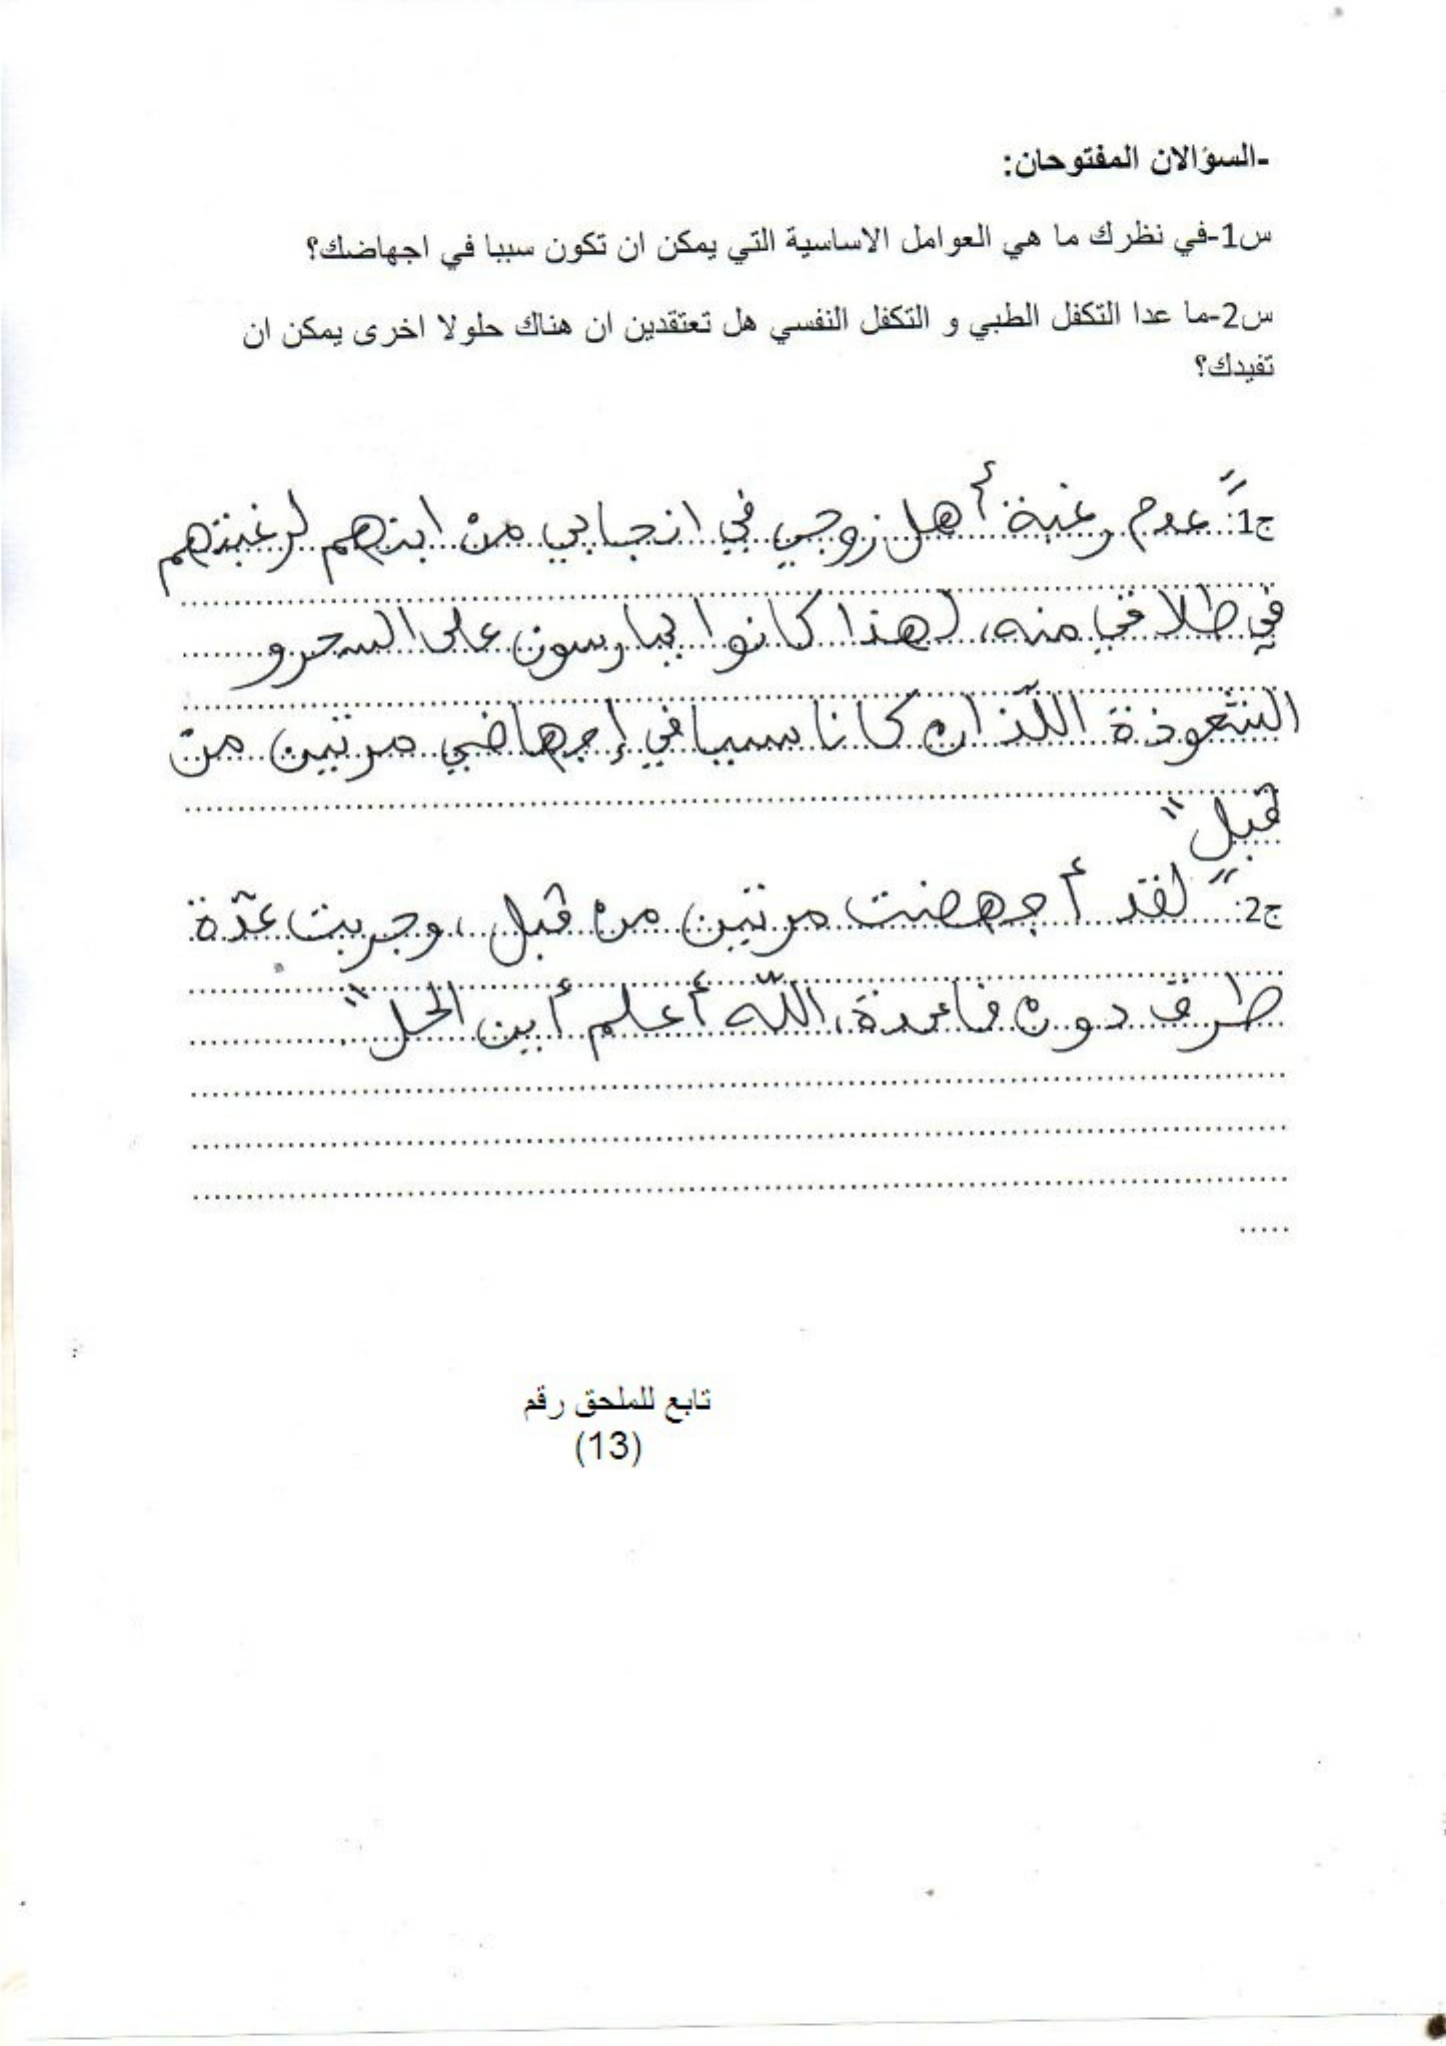 -السؤالان المفتوحان:
س1-في نظرك ما هي العوامل الاساسية التي يمكن ان تكون سببا في اجهاضك؟
س2-ما عدا التكفل الطبي و التكفل النفسي هل تعتقدين ان هناك حلولا اخرى يمكن ان
تفيدك؟
ج1: "عدم رغبة أهل زوجي في انجابي من ابنهم لرغبتهم
في طلاقي منه، لهذا كانوا يمارسون على السحر و
الشعوذة اللّذان كانا سببا في إجهاضي مرتين من
قبل"
ج2: "لقد أجهضت مرتين من قبل، وجربت عدّة
طرق دون فائدة، اللّه أعلم أين الحل"
تابع للملحق رقم
(13)